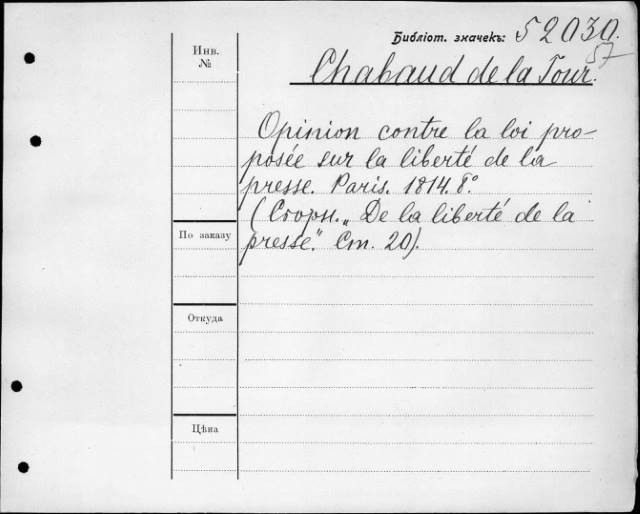 Библіот. значекъ: 52030.
57
Инв.
№
Chabaud de la Tour.
Opinion contre la loi pro-
posée sur la liberté de la
presse. Paris. 1814. 8º.
(Сборн. „De la liberté de la
presse." Ст. 20).
По заказу
Откуда
Цѣна